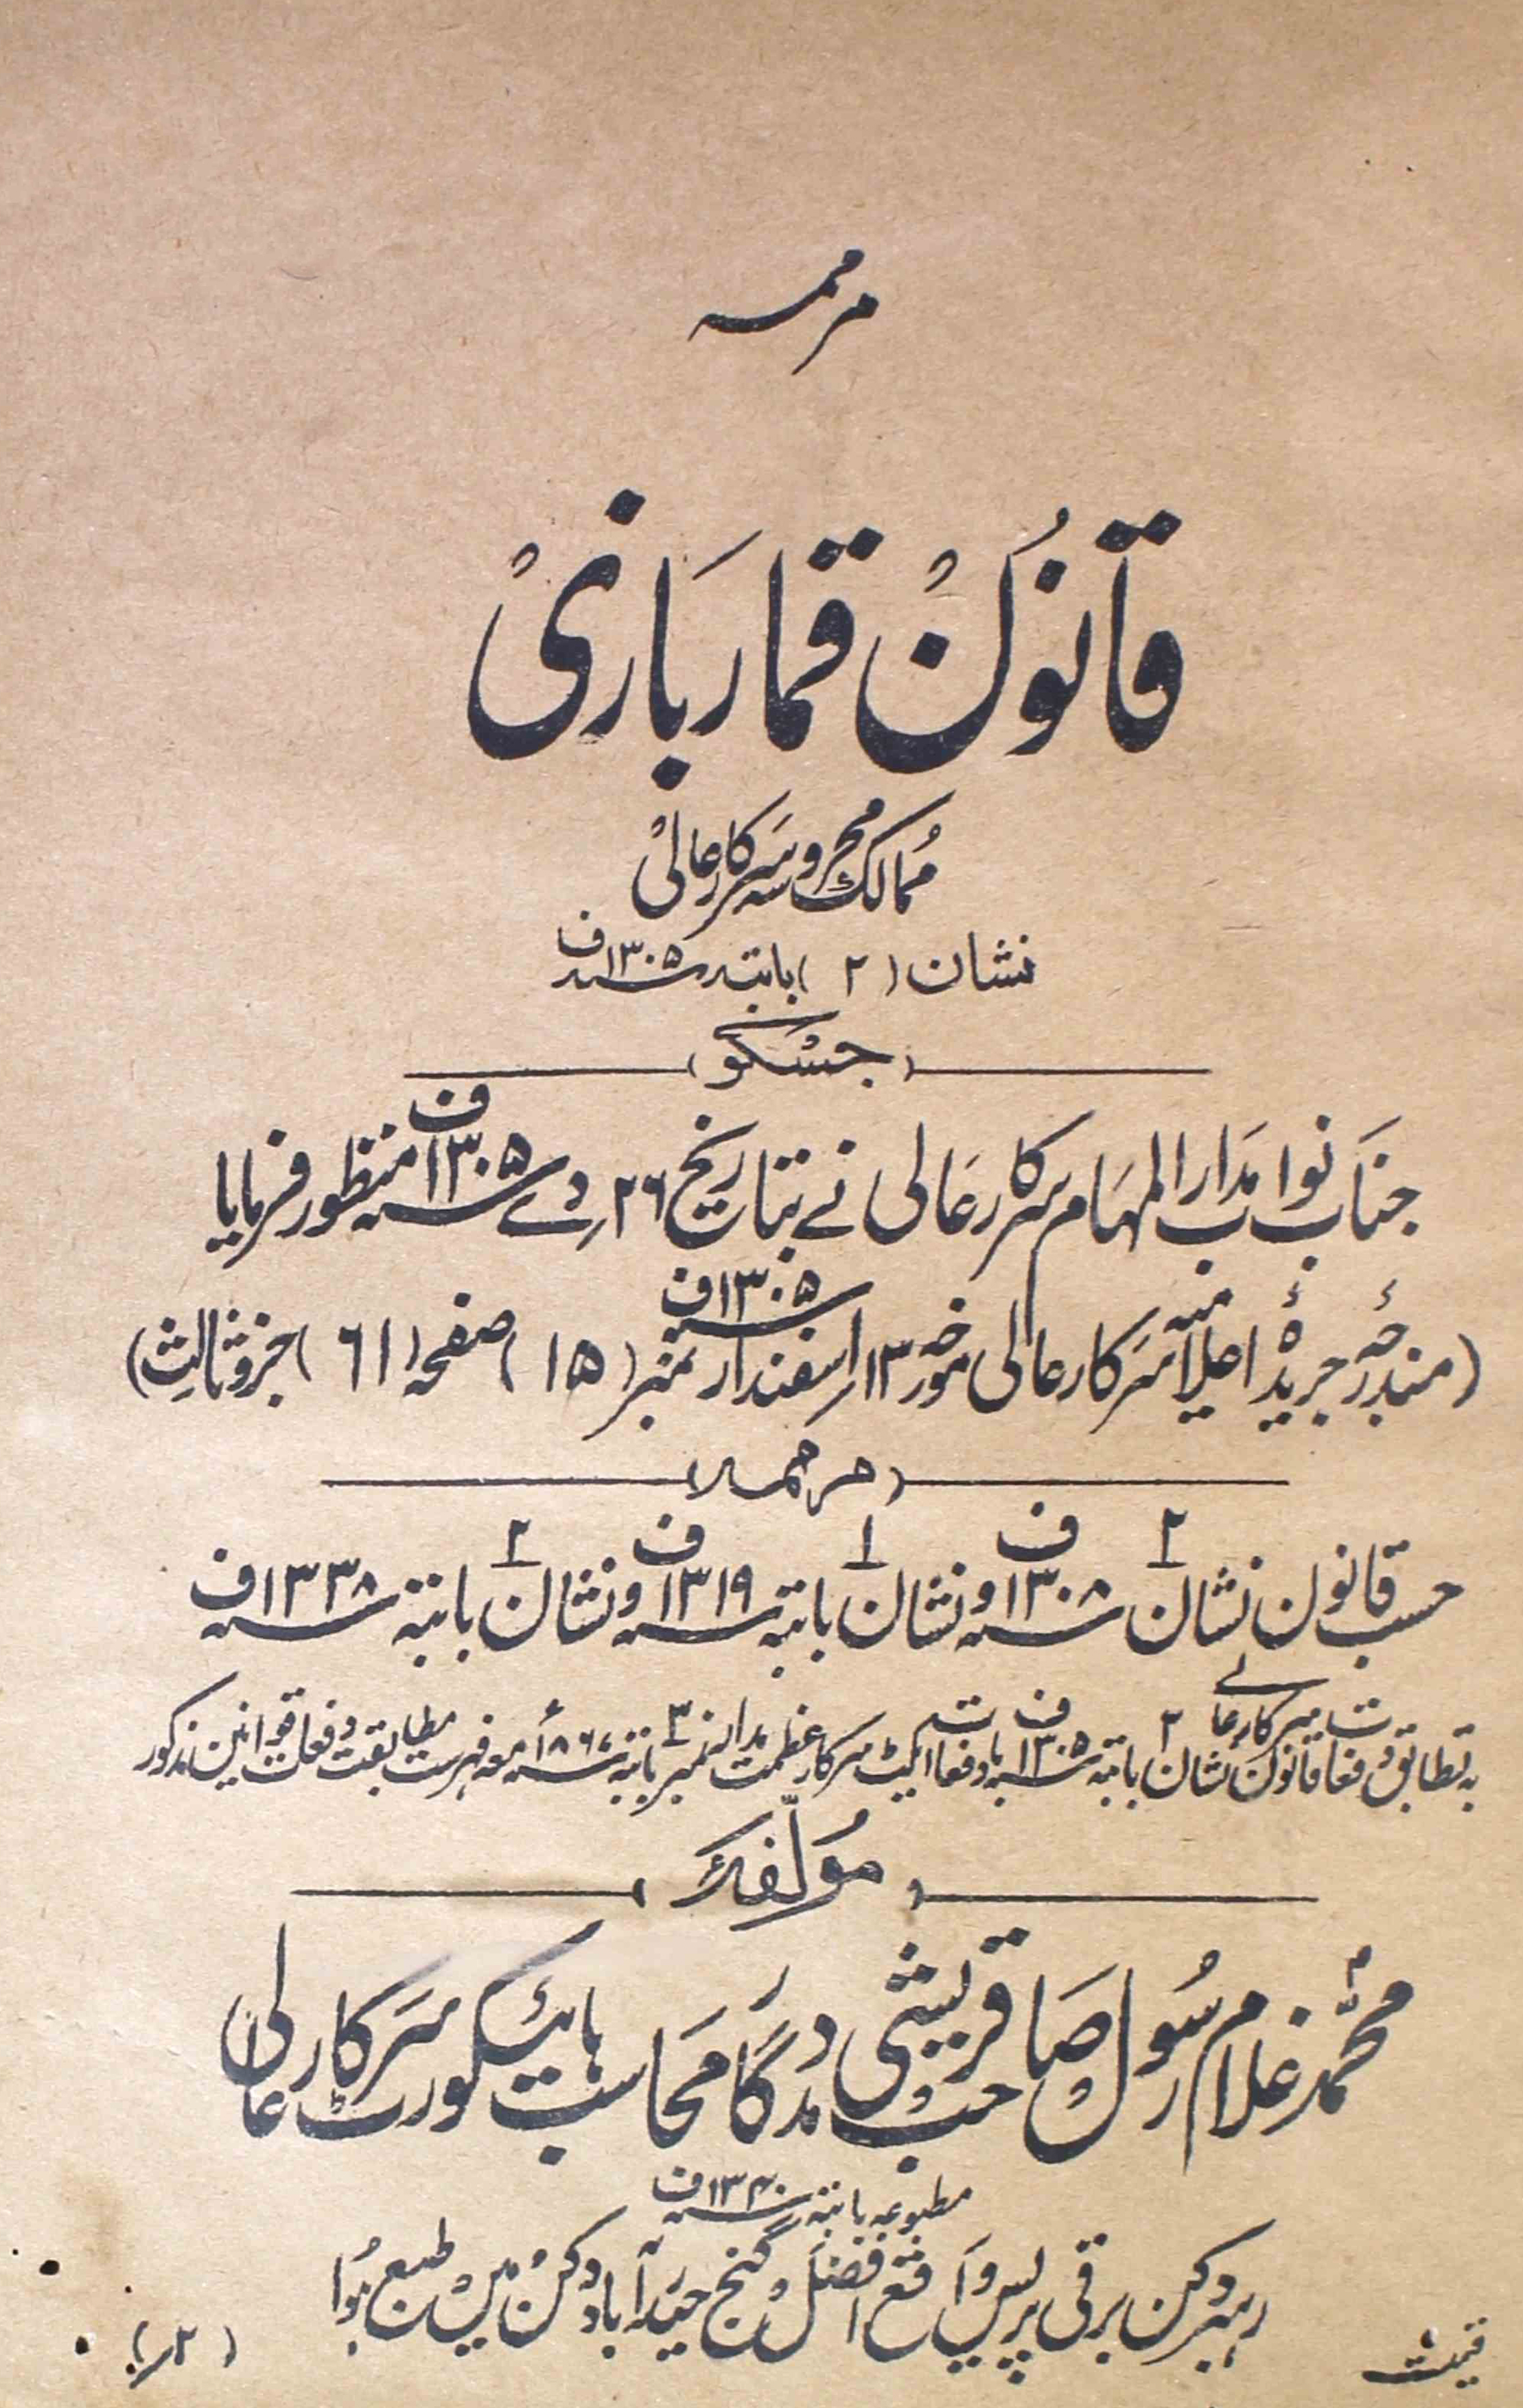 مرممہ
قانون قمار بازی
ممالک محروسہ سرکار عالی
نشان (۲) بابتہ سنہ ۱۳۰۵ ف
(جسکو)
جناب نواب مدار المہام سرکار عالی نے بتاریخ ۲۶ ردے سنہ ۱۳۰۵ ف منظور فرمایا
(مندرجہ جریدۂ اعلامیہ سرکار عالی مورخہ ۱۳ ار اسفندار سنہ ۱۳۰۵ ف نمبر (۱۵) صفحہ (۶۱) جزو ثالث)
(مرممہ)
حسب قانون نشان ۲ سنہ ۱۳۰۸ ف و نشان ۱ بابتہ سنہ ۱۳۱۹ ف و نشان ۲ بابتہ سنہ ۱۳۳۸ ف
بہ تطابق دفعات قانون سرکار عالی نشان ۲ بابتہ سنہ ۱۳۰۵ ف بادفعات ایکٹ سرکار عظمت مدار نمبر ۳ بابتہ سنہ ۱۸۶۷ء معہ فہرست مطابقت دفعات قوانین مذکور
(مؤلفہ)
محمد غلام رسول صاحب قریشی مددگار محاسب ہائیکورٹ سرکار عالی
مطبوعہ بابتہ سنہ ۱۳۴۰ ف
رہبر دکن برقی پریس واقع افضل گنج حیدرآباد دکن میں طبع ہوا
قیمت (۲ر)